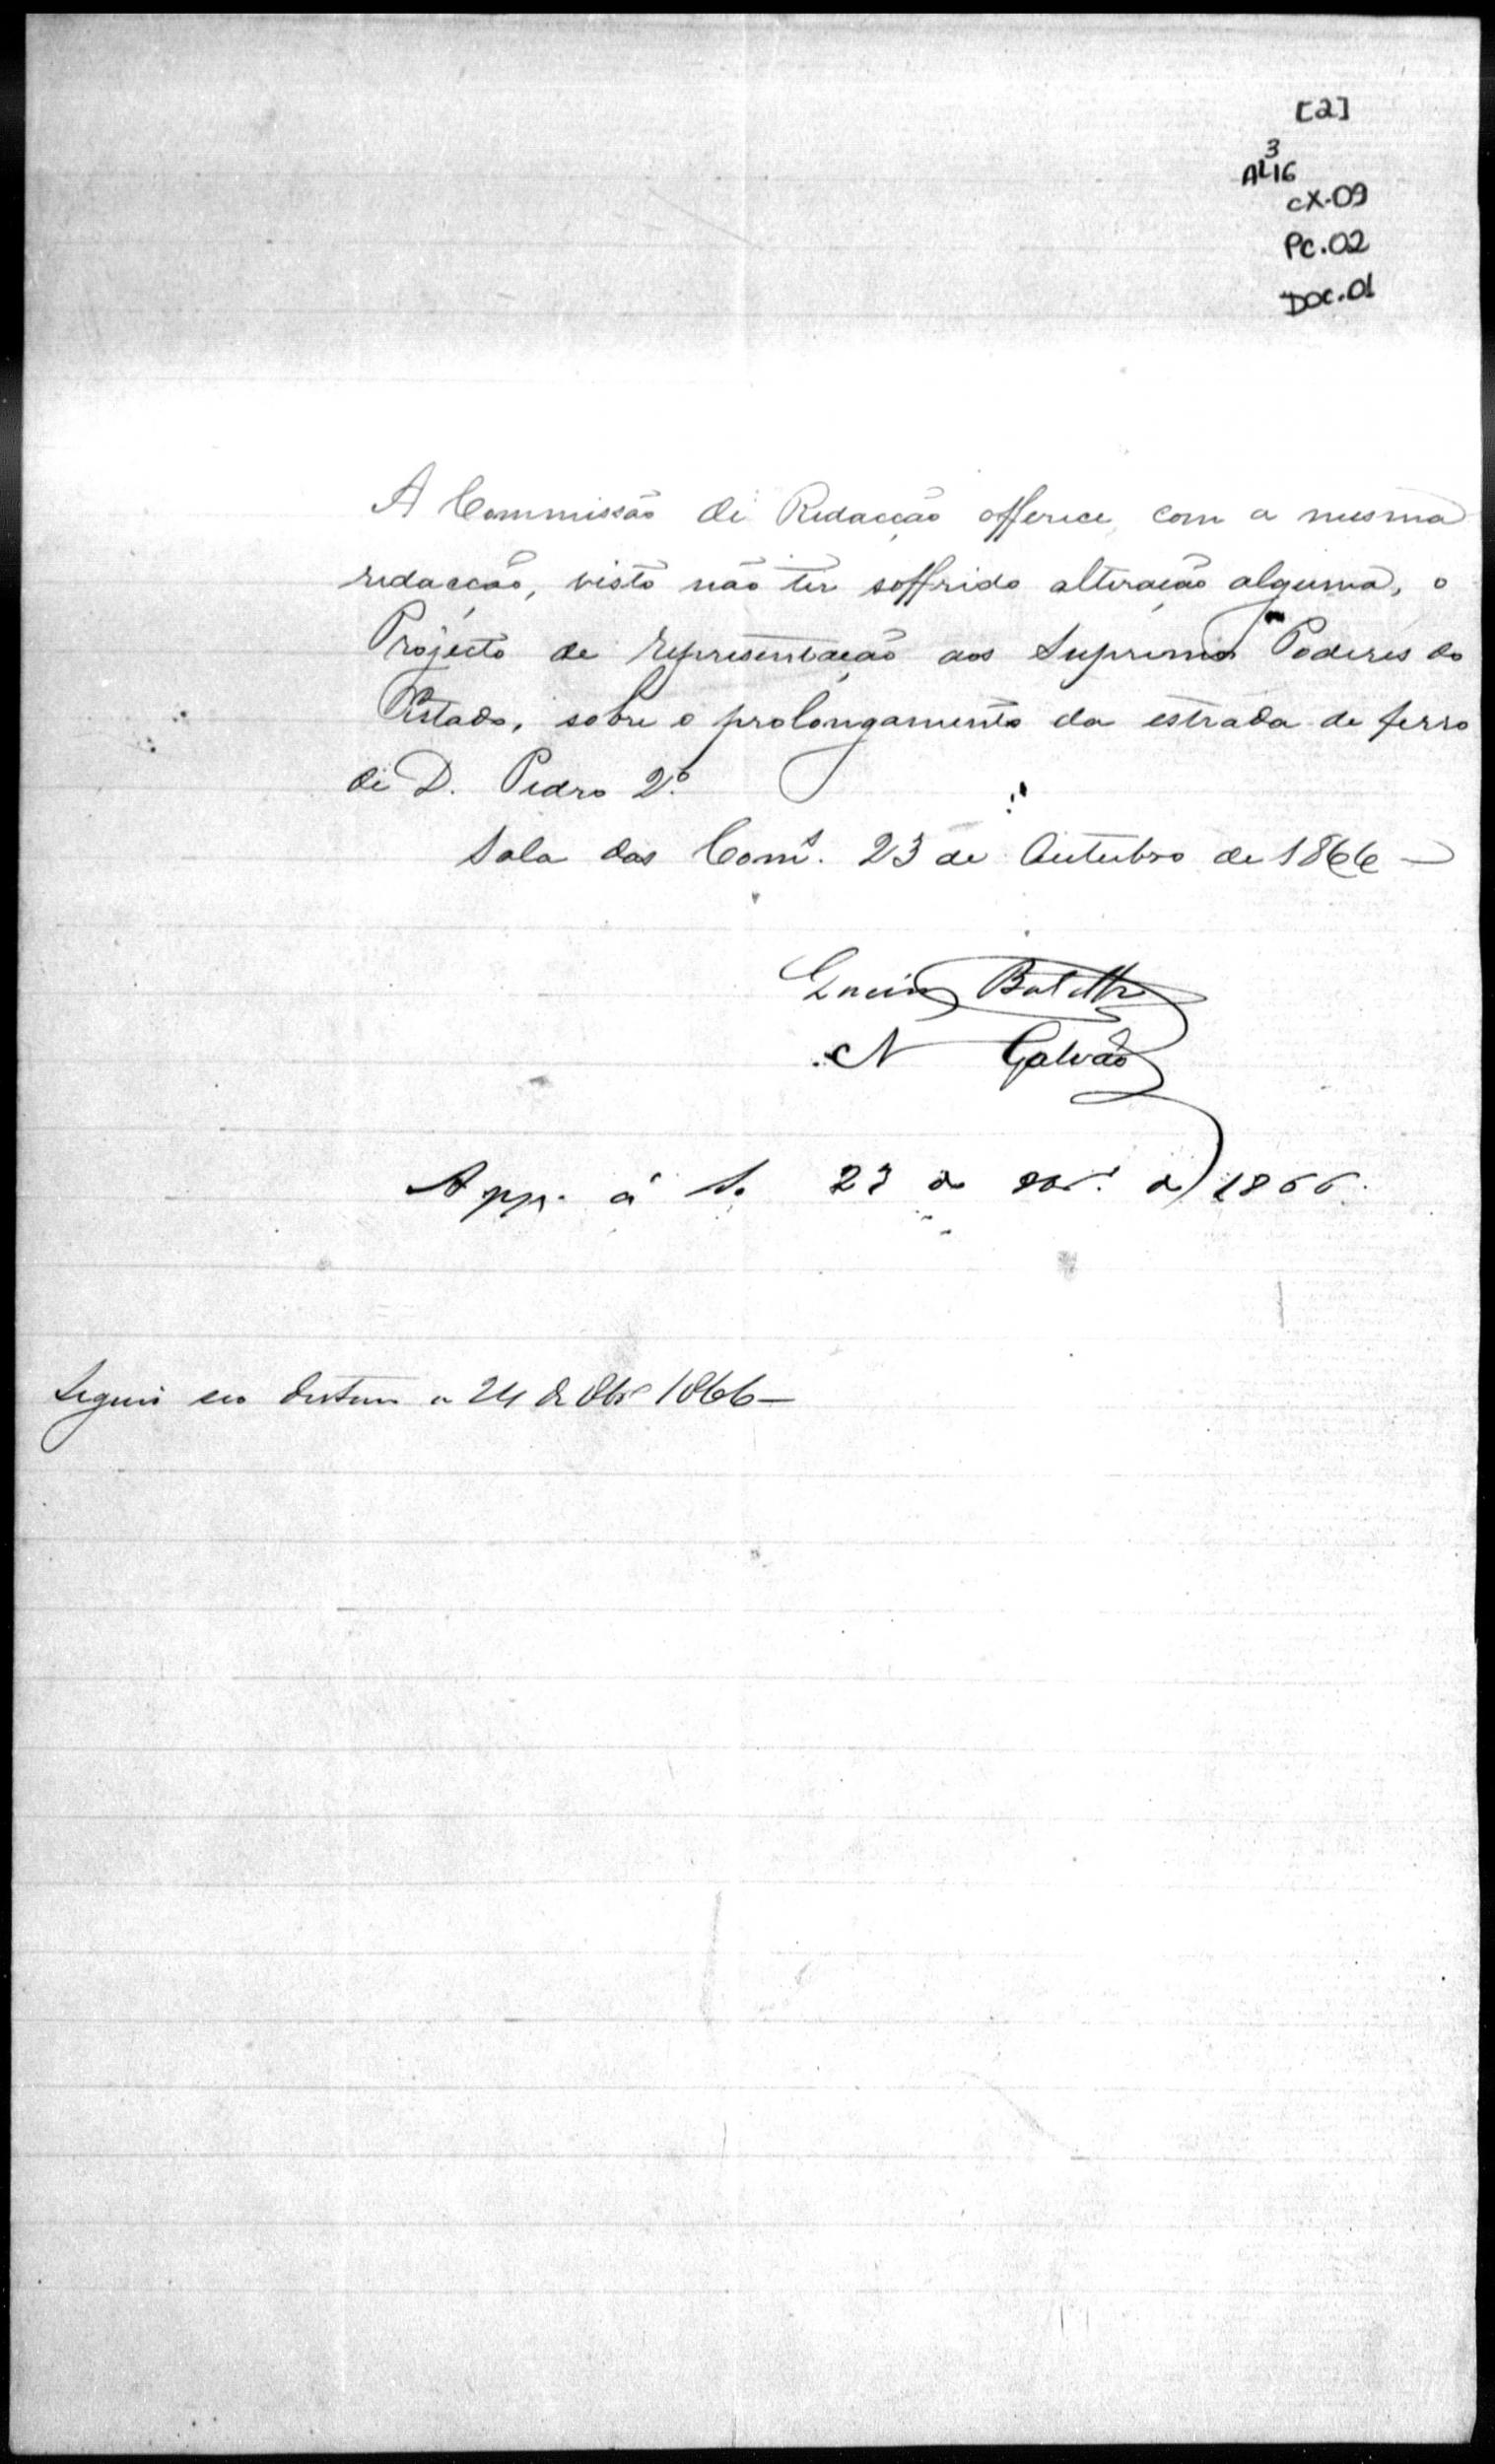 [2]
3
AL16
CX-09
PC.02
DOC.01
A Commissão de Redacção offerece, com a mesma
redacção, visto não ter soffrido alteração alguma, o
Projecto de representação aos Supremos Poderes do
Estado, sobre o prolongamento da estrada de ferro
de D. Pedro 2º.
Sala das Com.s 23 de Outubro de 1866 —
Galvão
App. á S. 23 de 1866.
Seguio seo destino a 24 de 8br.º 1866 —